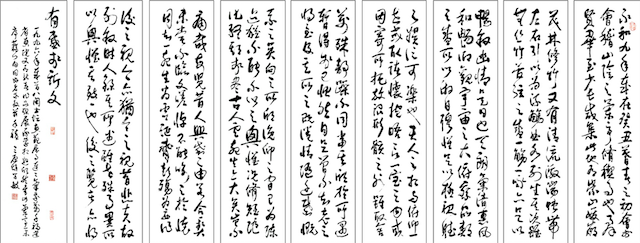 永和九年歲在癸丑暮春之初會於
會稽山陰之蘭亭修禊事也羣
賢畢至少長咸集此地有崇山峻嶺
茂林修竹又有清流激湍映帶
左右引以為流觴曲水列坐其次雖
無絲竹管弦之盛一觴一詠亦足以
暢敘幽情是日也天朗氣清惠風
和暢仰觀宇宙之大俯察品類
之盛所以遊目騁懷足以極視聽
之娛信可樂也夫人之相與俯仰
一世或取諸懷抱晤言一室之內或
因寄所託放浪形骸之外雖取舍
萬殊靜躁不同當其欣於所遇
暫得於己快然自足不知老之
將至及其所之既倦情隨事遷感慨
係之矣向之所欣俯仰之間已為陳
迹猶不能不以之興懷況修短隨
化終期於盡古人云死生亦大矣豈不
痛哉每覽昔人興感之由若合一契
未嘗不臨文嗟悼不能喻之於懷
固知一死生為虛誕齊彭殤為妄作
後之視今亦猶今之視昔悲夫故
列敘時人錄其所述雖世殊事異所
以興懷其致一也後之覽者亦將
有感於斯文